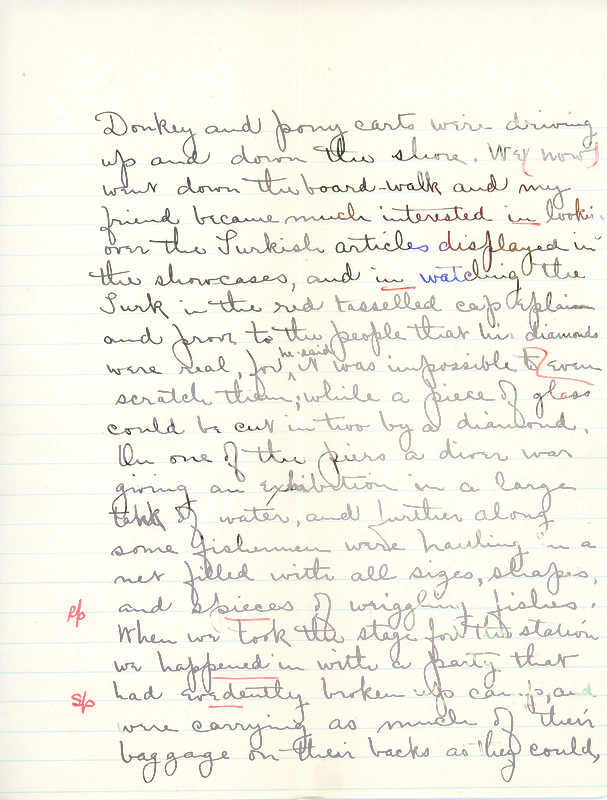 Donkey and pony carts were driving
up and down the shore. We now
went down the board-walk and my
friend became much interested in looki
over the Turkish articles displayed in
the showcases, and in watching the
Turk in the red tasselled cap explain
and prove to the people that his diamonds
were real, for he said it was impossible to even
scratch them, while a piece of glass
could be cut in two by a diamond.
On one of the piers a diver was
giving an exhibition in a large
tank of water, and further along
some fishermen were hauling in a
net filled with all sizes, shapes,
Sp and spieces of wriggling fishes.
When we took the stage for the station
we happened in with a party that
Sp had evedently broken up camp, and
were carrying as much of their
baggage on their backs as they could,